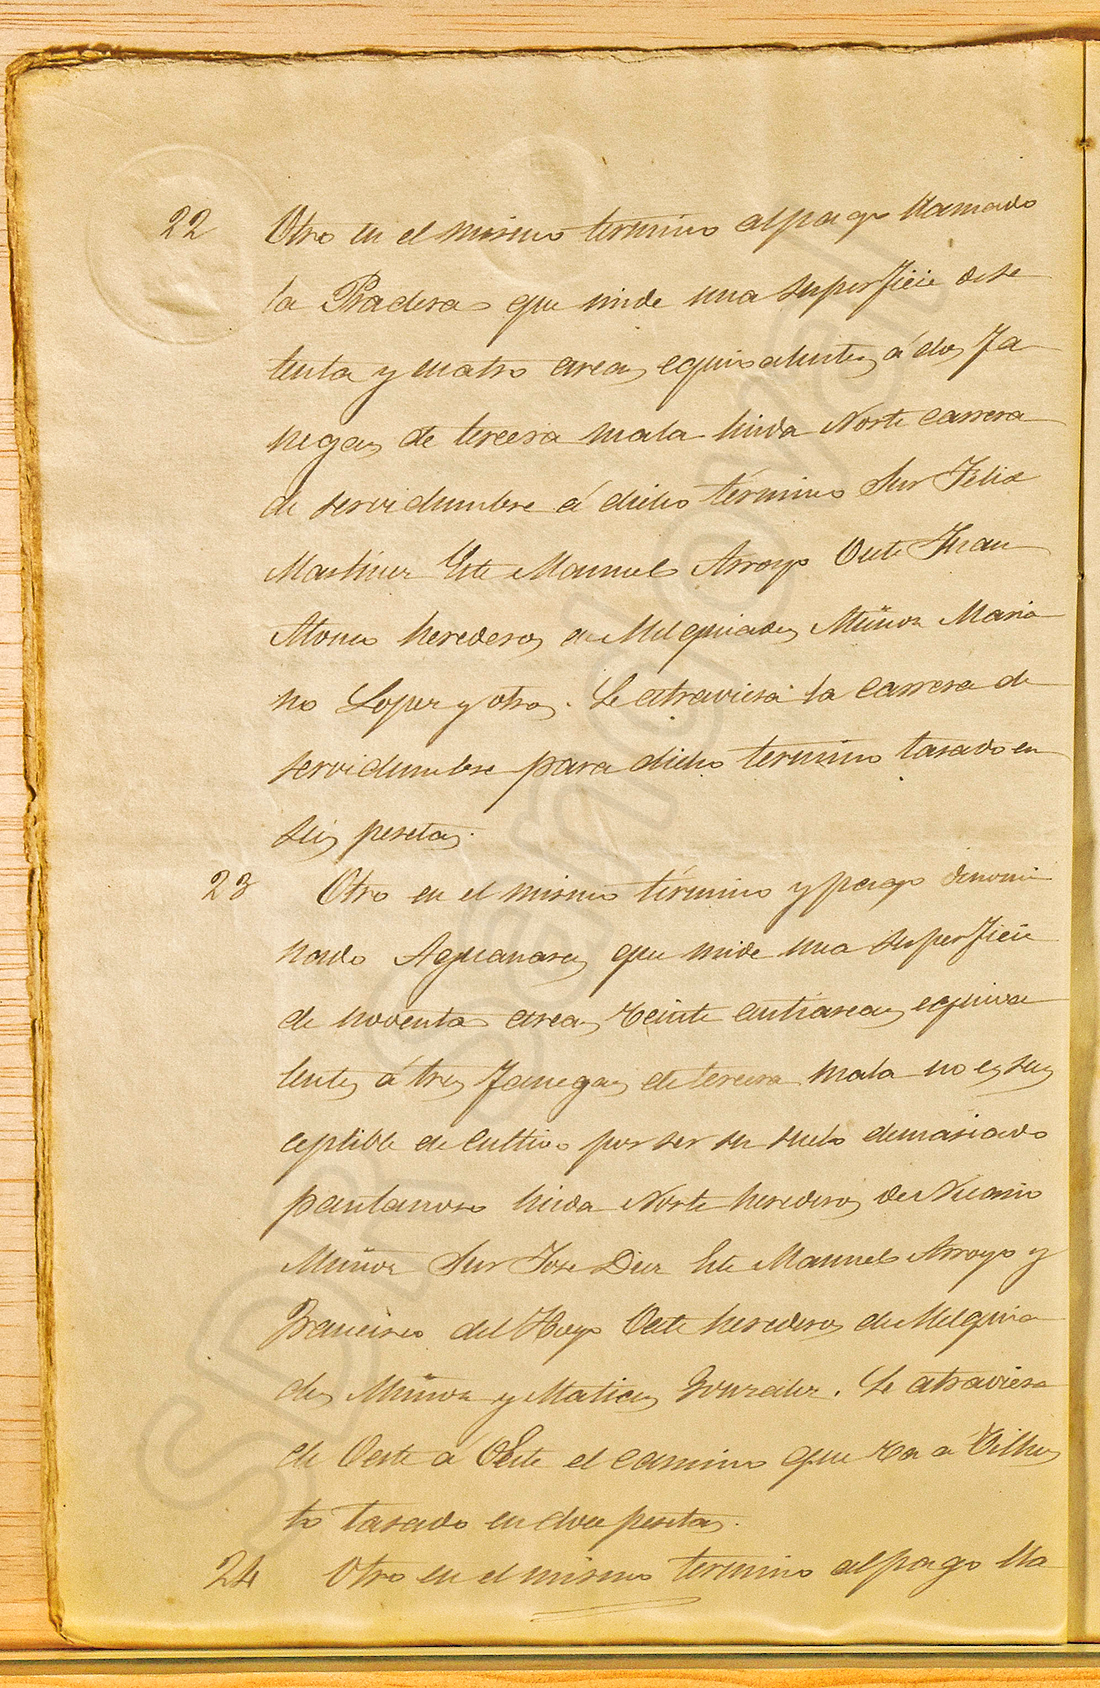 22 Otro en el mismo termino al pago llamado
la Pradera que mide una superficie de se
tenta y cuatro areas equivalentes á dos fa
negas de tercera mala linda Norte carrera
de servidumbre á dicho término Sur Felix
Martinez Este Manuel Arroyo Oeste Juan
Alonso herederos de Melquiades Muñoz Maria
no Lopez y otros. Le atraviesa la carrera de
servidumbre para dicho termino tasado en
seis pesetas.
23 Otro en el mismo término y pago denomi
nado Aguanares que mide una superficie
de noventa areas veinte centiareas equiva
lentes á tres fanegas de tercera mala no es sus
ceptible de cultivo por ser su suelo demasiado
pantanoso linda Norte herederos de Nicasio
Muñoz Sur Jose Diez Este Manuel Arroyo y
Francisco del Hoyo Oeste herederos de Melquia
des Muñoz y Matias Gonzalez. Le atraviesa
de Oeste a Este el camino que va a Vilhes
to tasado en doce pesetas.
24 Otro en el mismo termino al pago lla